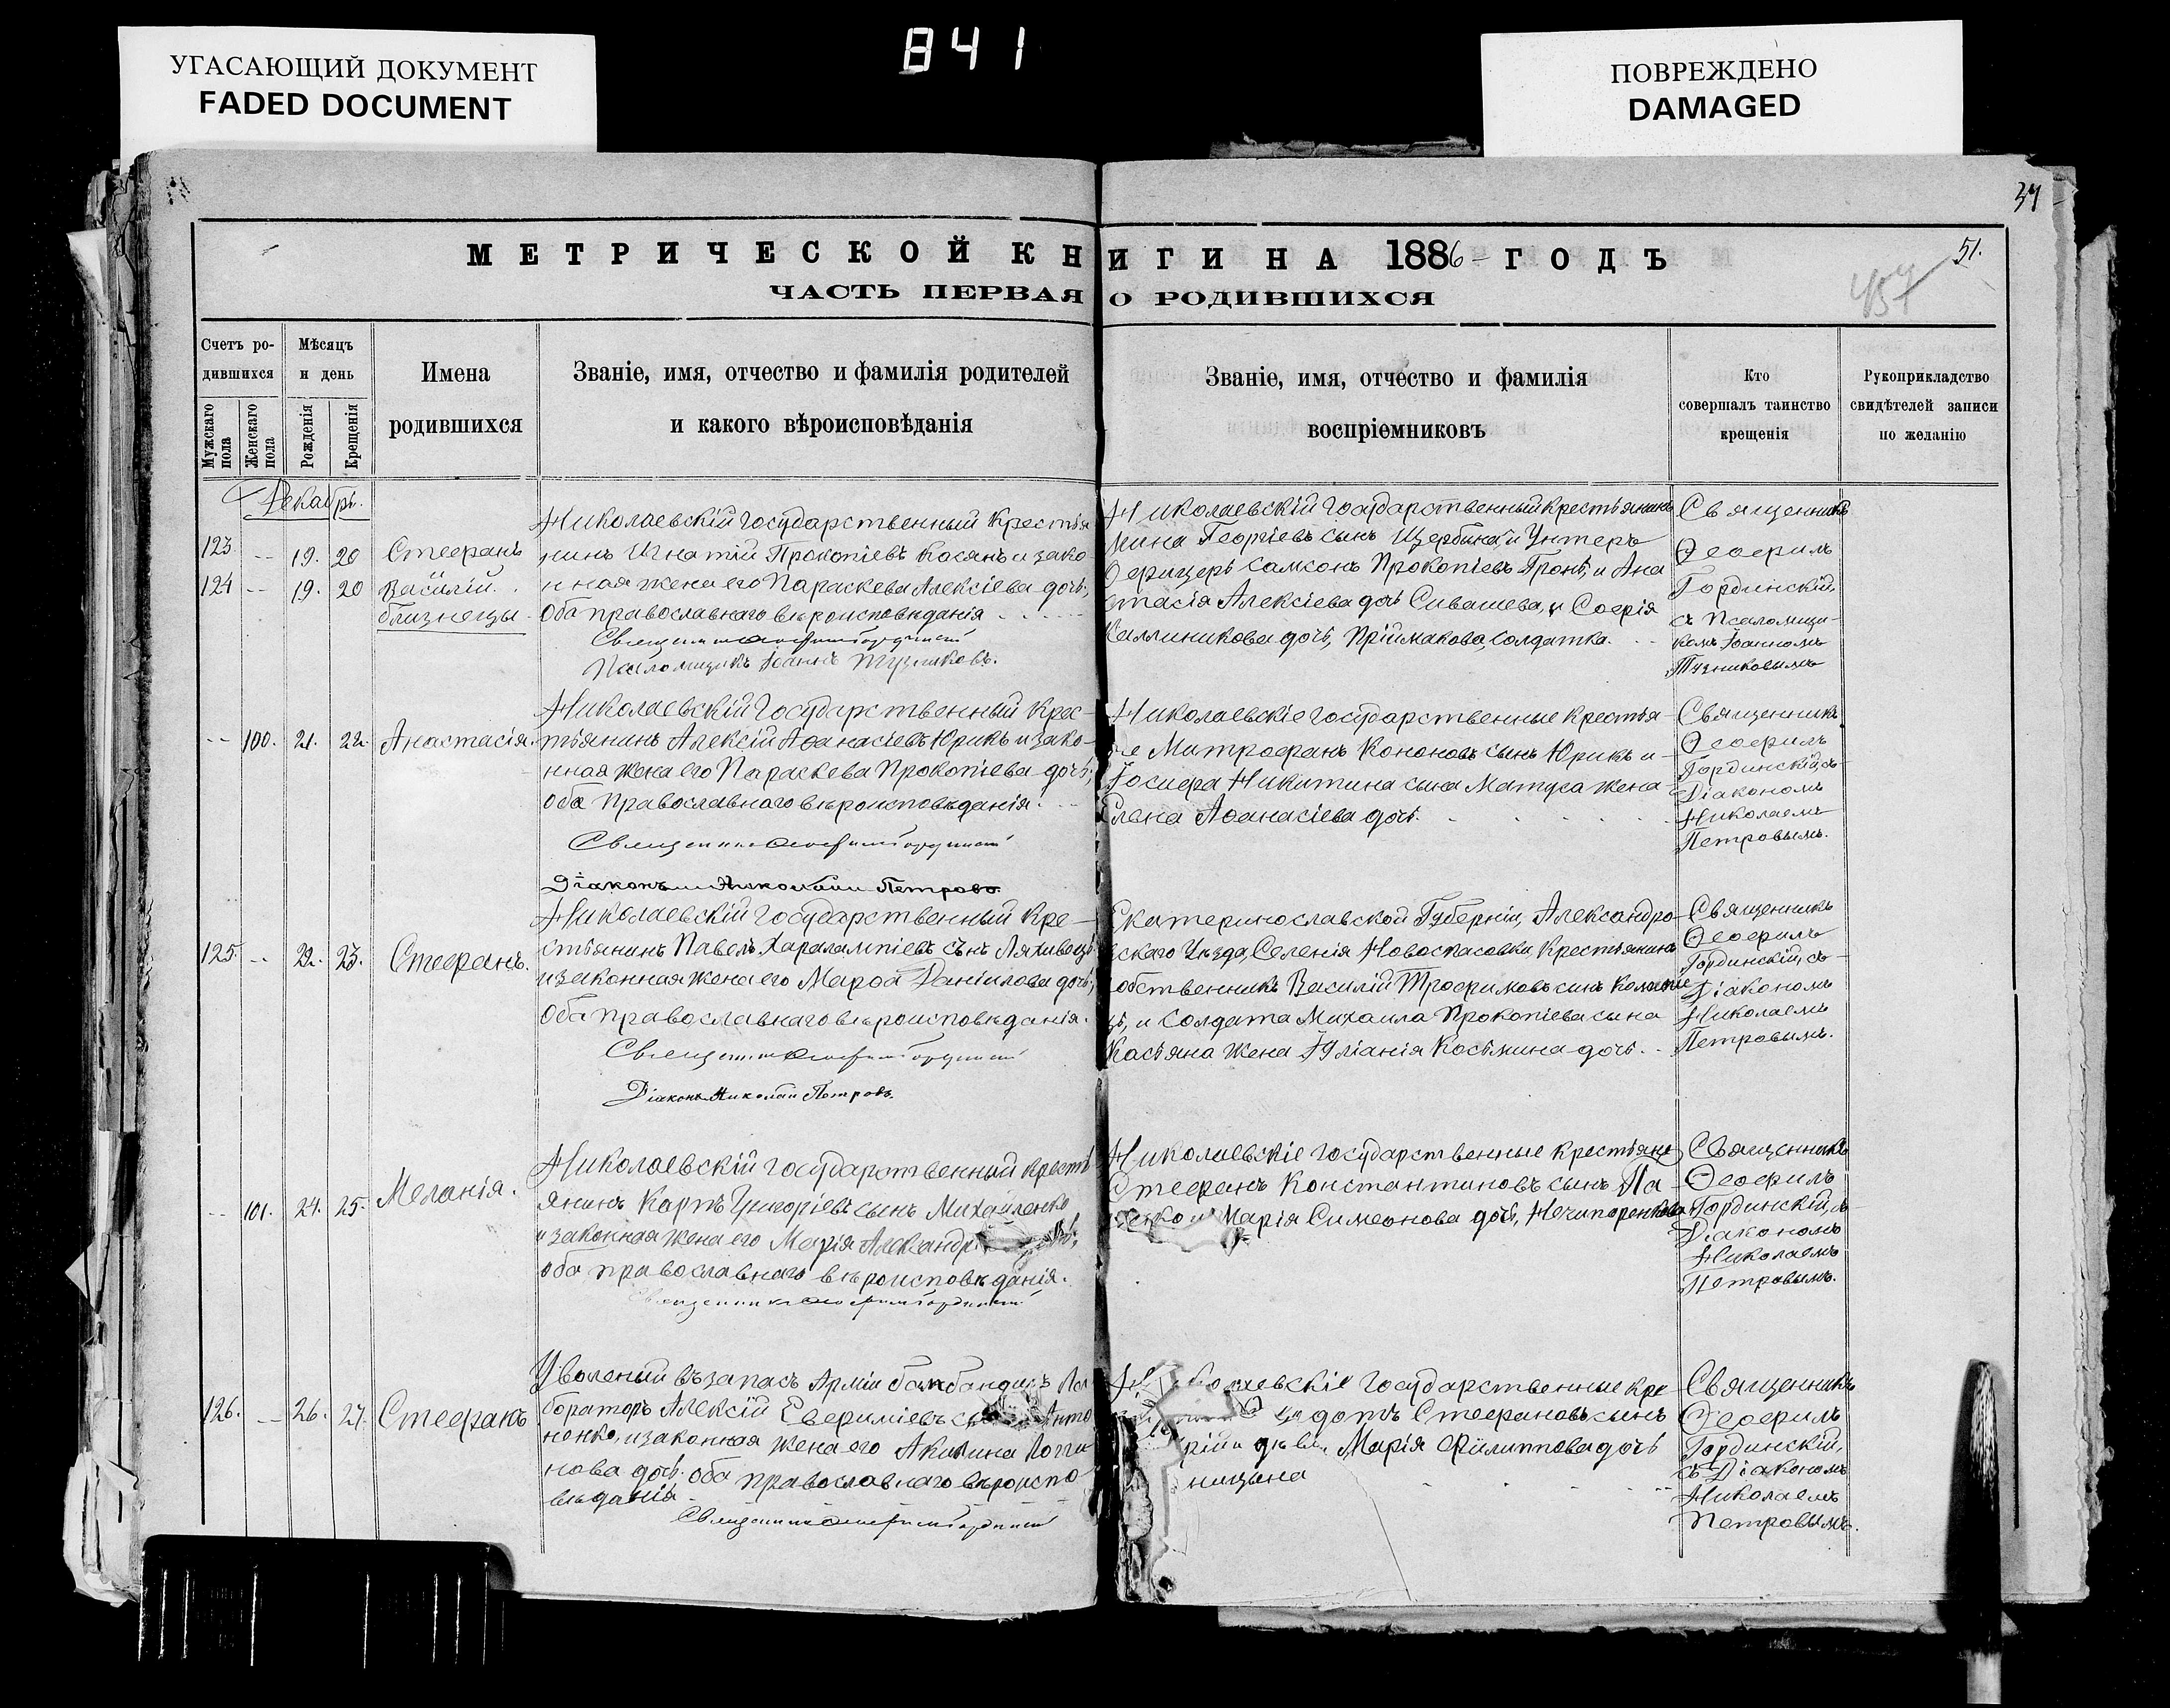 УГАСАЮЩИЙ ДОКУМЕНТ
FADED DOCUMENT
841
ПОВРЕЖДЕНО
DAMAGED
34
51.
457
МЕТРИЧЕСКОЙ КНИГИ НА 1886 ГОДЪ
ЧАСТЬ ПЕРВАЯ О РОДИВШИХСЯ
Счетъ ро-
дившихся
Мужскаго пола
Женскаго пола
Мѣсяцъ
и день
Рожденія
Крещенія
Имена
родившихся
Званіе, имя, отчество и фамилія родителей
и какого вѣроисповѣданія
Званіе, имя, отчество и фамилія
воспріемниковъ
Кто
совершалъ таинство
крещенія
Рукоприкладство
свидѣтелей записи
по желанію
Декабрь.
123 -- 19. 20 Стефанъ
124 -- 19. 20 Василій.
близнецы
Николаевскій Государственный Крестья
нинъ Игнатій Прокопіевъ Касянъ и зако-
нная жена его Параскева Алексіева дочь,
Оба православнаго вѣроисповѣданія
Псаломщикъ Іоаннъ Тузниковъ.
Николаевскій Государственный Крестьянинъ
Мина Георгіевъ сынъ Щербина, и Унтеръ
Офицеръ Самсонъ Прокопіевъ Тронь, и Ана
стасія Алексіева дочь Сивашева, и Софія
Каллиникова дочь, Пріймакова, солдатка.
Священникъ
Ѳеофилъ
Гординскій,
съ Псаломщи-
комъ Іоанномъ
Тузниковымъ
-- 100. 21. 22. Анастасія.
Николаевскій Государственный Крес-
тьянинъ Алексій Аѳанасіевъ Юрикъ и зако-
нная жена его Параскева Прокопіева дочь,
оба Православнаго вѣроисповѣданія.
Діаконъ Николай Петровъ
Николаевскіе государственные крестья-
не Митрофанъ Кононовъ сынъ Юрикъ и
Іосифа Никитина сына Матуха жена
Елена Аѳанасіева дочь.
Священникъ
Ѳеофилъ
Гординскій, съ
Діакономъ
Николаемъ
Петровымъ.
125. -- 22. 23. Стефанъ.
Николаевскій Государственный Кре-
стьянинъ Павелъ Харалампіевъ сынъ Ляховецъ
и законная жена его Марѳа Даніилова дочь,
Оба православнаго вѣроисповѣданія.
Діаконъ Николай Петровъ.
Екатеринославской Губерніи, Александро-
вскаго Уѣзда, Селенія Новоспасовки, Крестьянинъ
собственникъ Василій Трофимовъ сынъ
и Солдата Михаила Прокопіева сына
Касьяна жена Іуліанія Косьмина дочь.
Священникъ
Ѳеофилъ
Гординскій, съ
Діакономъ
Николаемъ
Петровымъ.
-- 101. 24. 25. Меланія.
Николаевскій государственный кресть
янинъ Карпъ Григоріевъ сынъ Михайленко
и законная жена его Марія Александр
оба православнаго вѣроисповѣданія.
Николаевскіе государственные крестьяне
Стефанъ Константиновъ сынъ
и Марія Симеонова дочь, Нечипоренкова
Священникъ
Ѳеофилъ
Гординскій, съ
Діакономъ
Николаемъ
Петровымъ.
126. -- 26. 27. Стефанъ
Уволеный въ запасъ Арміи
бораторъ Алексій Евфиміевъ Анто
ненко, и законная жена его Акилина Логги
нова дочь. оба православнаго вѣроиспо
вѣданія.
Государственные кре
Стефановъ сынъ
Марія Филиппова дочь
Священникъ
Ѳеофилъ
Гординскій,
съ Діакономъ
Николаемъ
Петровымъ.